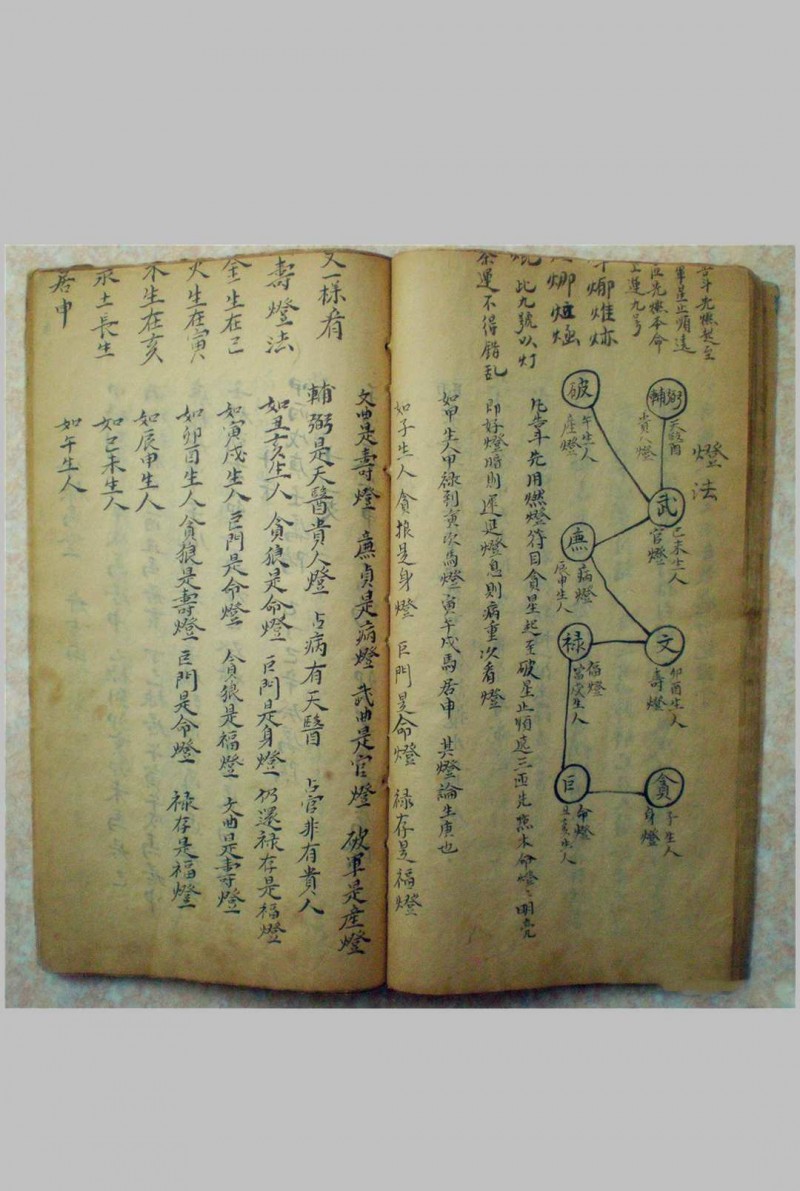 燈法
輔弼
天醫
貴人燈
武
己未生人
官燈
文
卯酉生人
壽燈
貪
子生人
身燈
破
午生人
產燈
廉
病燈
辰申生人
祿
福燈
寅戌生人
巨
命燈
丑亥生人
告斗先燃起至
軍星止順遠
位先燃本命
連九号
此九號以灯
運不得錯乱
凡告斗先用燃燈符自貪星起至破星止順遠三匝先燃本命燈明亮
即好燈暗則運延燈息則病重次看燈
如甲生人甲禄到寅次馬燈寅午戌馬居申 其燈論生庚也
如子生人 貪狼是身燈 巨門是命燈 禄存是福燈
文曲是壽燈 廉貞是病燈 武曲是官燈 破軍是產燈
輔弼是天醫貴人燈 占病有天醫 占官非有貴人
如丑亥生人 貪狼是命燈 巨門是身燈 仍還禄存是福燈
如寅戌生人 巨門是命燈 貪狼是福燈 文曲是壽燈
如卯酉生人 貪狼是壽燈 巨門是命燈 禄存是福燈
如辰申生人
如己未生人
如午生人
又一樣看
壽燈法
金生在己
火生在寅
木生在亥
水土長生
居申